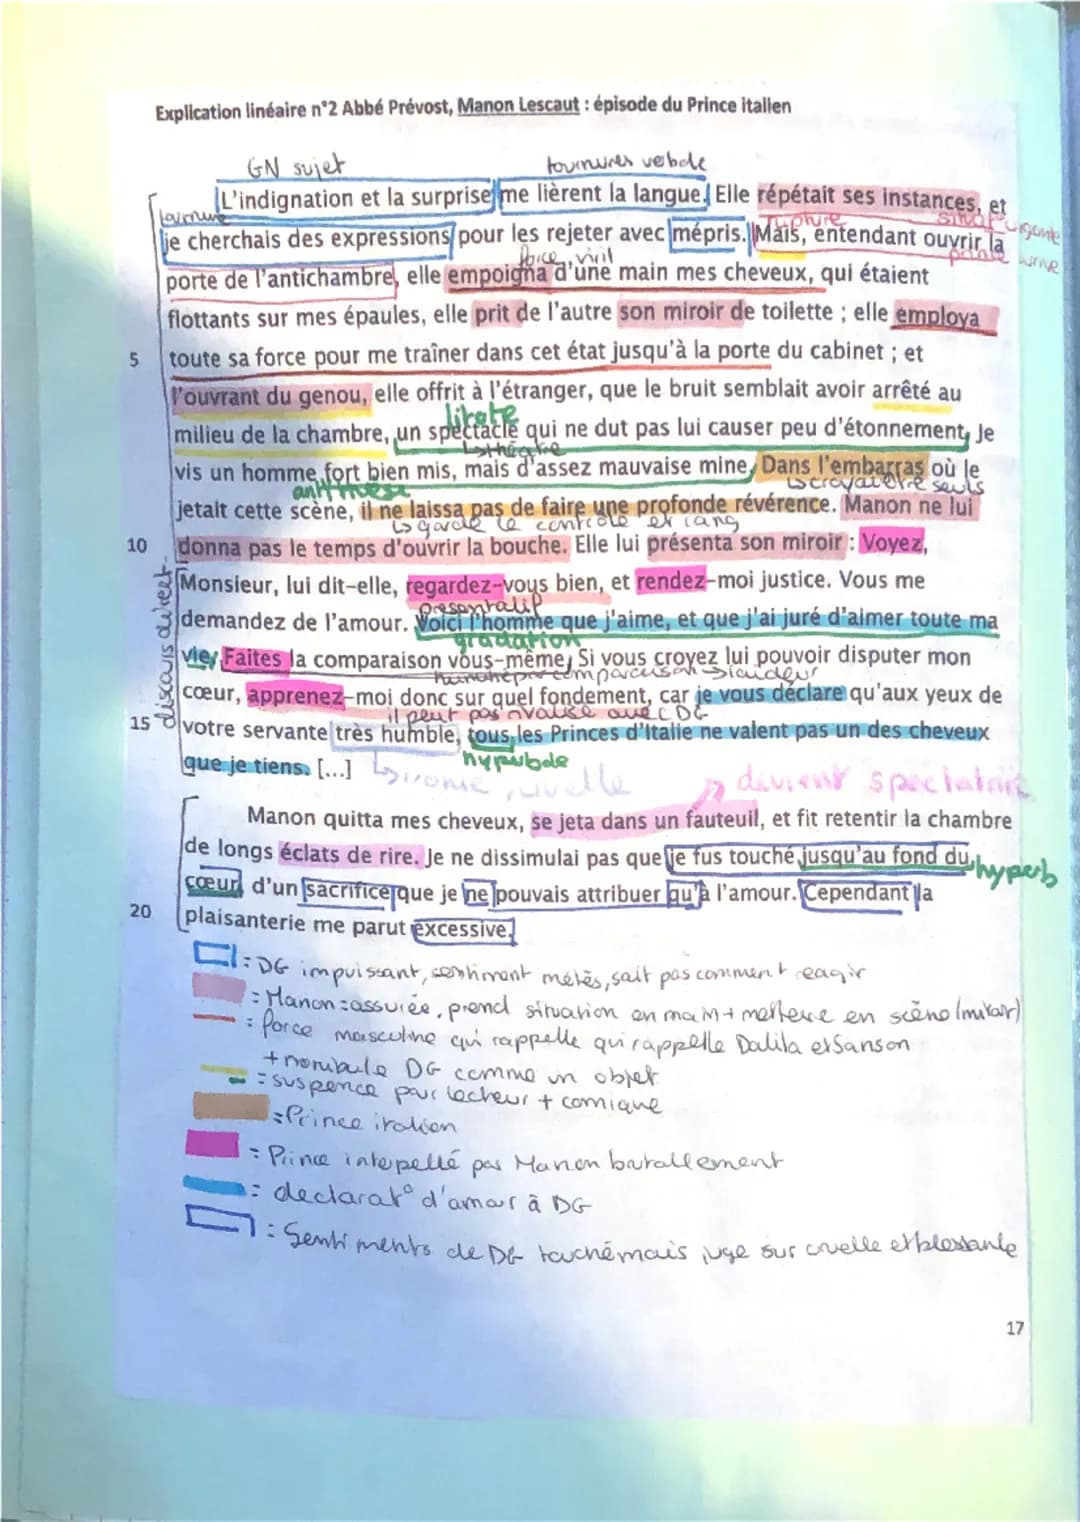 Explication linéaire n°2 Abbé Prévost, Manon Lescaut : épisode du Prince italien
GN sujet
tournures verbale
L'indignation et la surprise me lièrent la langue. Elle répétait ses instances, et
rupture
je cherchais des expressions pour les rejeter avec mépris. Mais, entendant ouvrir la
force viril
porte de l'antichambre, elle empoigna d'une main mes cheveux, qui étaient
flottants sur mes épaules, elle prit de l'autre son miroir de toilette ; elle employa
5 toute sa force pour me traîner dans cet état jusqu'à la porte du cabinet ; et
l'ouvrant du genou, elle offrit à l'étranger, que le bruit semblait avoir arrêté au
litote
milieu de la chambre, un spectacle qui ne dut pas lui causer peu d'étonnement. Je
↳ théâtre
vis un homme fort bien mis, mais d'assez mauvaise mine. Dans l'embarras où le
antithèse
↳ croyait être seuls
jetait cette scène, il ne laissa pas de faire une profonde révérence. Manon ne lui
↳ garde le contrôle et rang
10 donna pas le temps d'ouvrir la bouche. Elle lui présenta son miroir : Voyez,
discours direct
Monsieur, lui dit-elle, regardez-vous bien, et rendez-moi justice. Vous me
présentatif
demandez de l'amour. Voici l'homme que j'aime, et que j'ai juré d'aimer toute ma
gradation
vie. Faites la comparaison vous-même. Si vous croyez lui pouvoir disputer mon
comparaison → laideur
cœur, apprenez-moi donc sur quel fondement, car je vous déclare qu'aux yeux de
il peut pas rivalisé avec DG
15 votre servante très humble, tous les Princes d'Italie ne valent pas un des cheveux
hyperbole
que je tiens. [...]
↳ ironie, cruelle
↳ devient spectatrice
Manon quitta mes cheveux, se jeta dans un fauteuil, et fit retentir la chambre
de longs éclats de rire. Je ne dissimulai pas que je fus touché jusqu'au fond du
hyperb
cœur d'un sacrifice que je ne pouvais attribuer qu'à l'amour. Cependant la
20 plaisanterie me parut excessive.
= DG impuissant, sentiment mêlés, sait pas comment reagir
= Manon = assurée, prend situation en main + metteuse en scène (miroir)
= force masculine qui rappelle qui rappelle Dalila et Sanson
+ DG comme un objet
= suspence pour lecteur + comique
= Prince italien
= Prince interpellé par Manon brutallement
= declarat° d'amour à DG
= Sentiments de DG touché mais juge sur cruelle et blessante
17